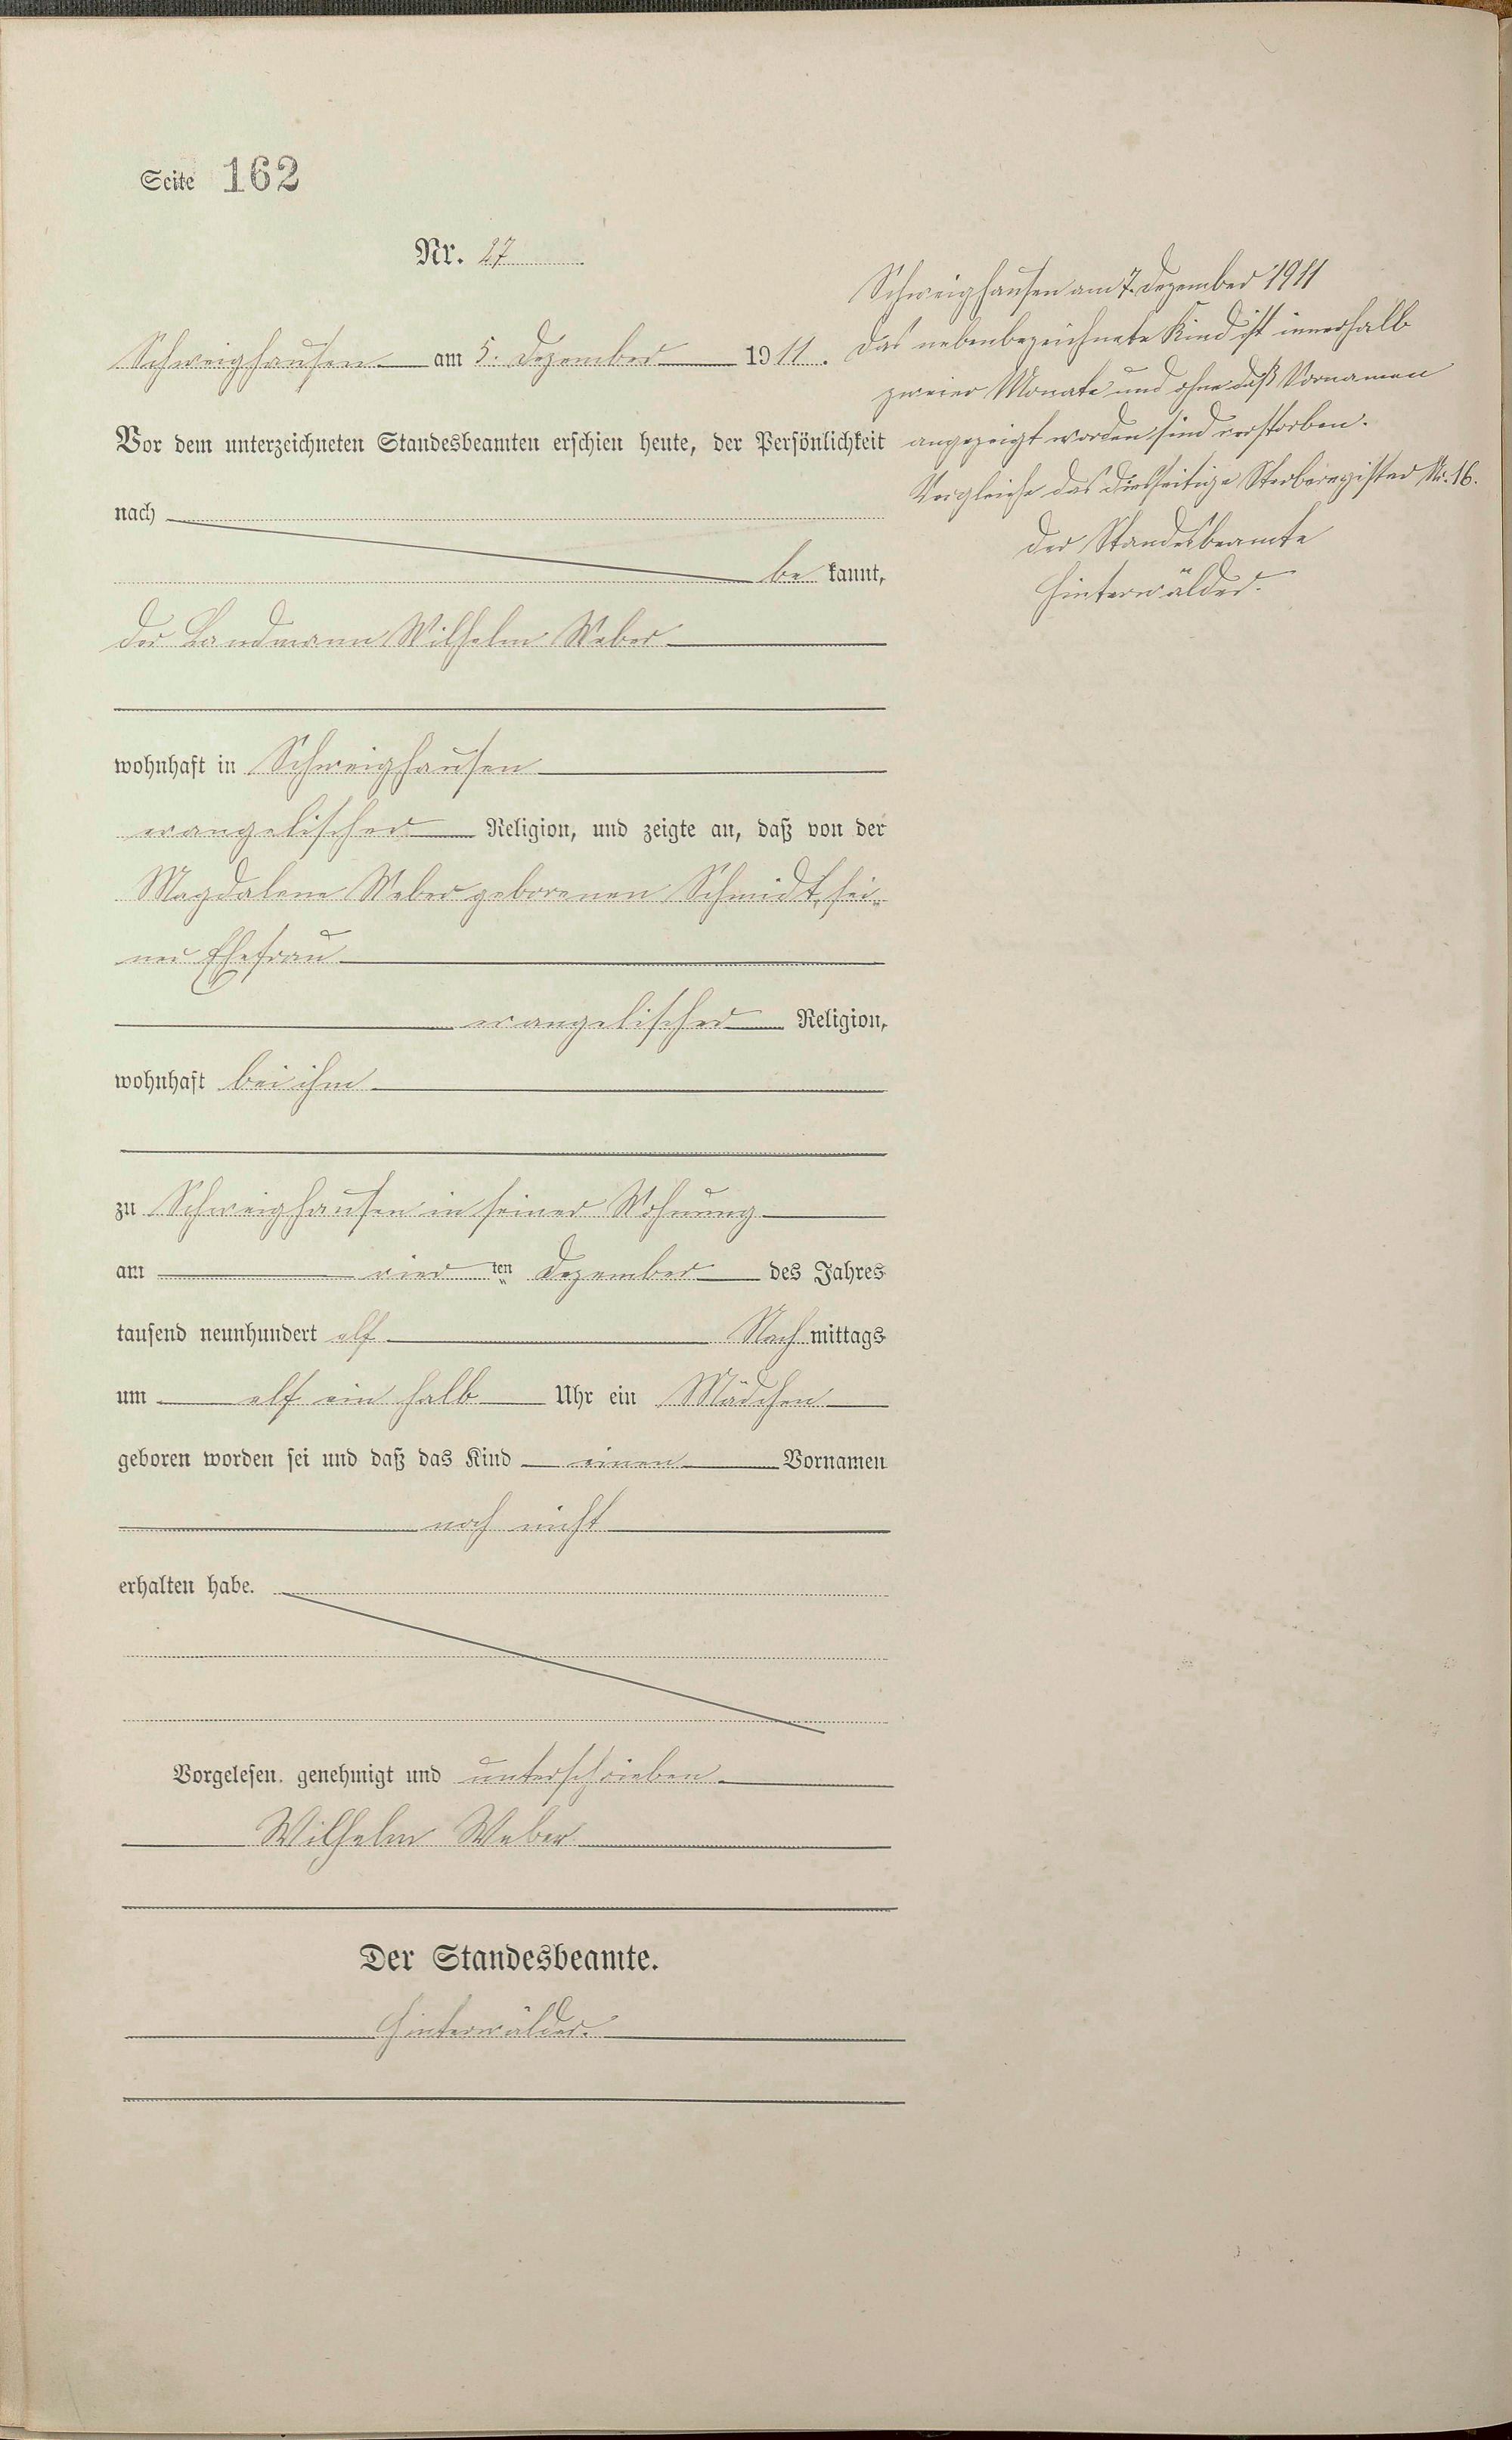 Seite 162
Nr. 27
Schweighausen am 5. Dezember 1911.
Vor dem unterzeichneten Standesbeamten erschien heute, der Persönlichkeit
nach
be kannt,
der Landmann Wilhelm Weber
wohnhaft in Schweighausen
evangelischer Religion, und zeigte an, daß von der
Magdalene Weber geborenen Schmidt, sei-
ner Ehefrau
evangelischer Religion,
wohnhaft bei ihm
zu Schweighausen in seiner Wohnung
am vier ten Dezember des Jahres
tausend neunhundert elf Nach mittags
um elf ein halb Uhr ein Mädchen
geboren worden sei und daß das Kind einen Vornamen
noch nicht
erhalten habe.
Vorgelesen, genehmigt und unterschrieben
Wilhelm Weber
Der Standesbeamte.
Hinterwälder.
Schweighausen am 7. Dezember 1911
Das nebenbezeichnete Kind ist innerhalb
zweier Monate und ohne daß Vornamen
angezeigt worden sind verstorben.
Vergleiche das diesseitige Sterberegister Nr. 16.
Der Standesbeamte
Hinterwälder.